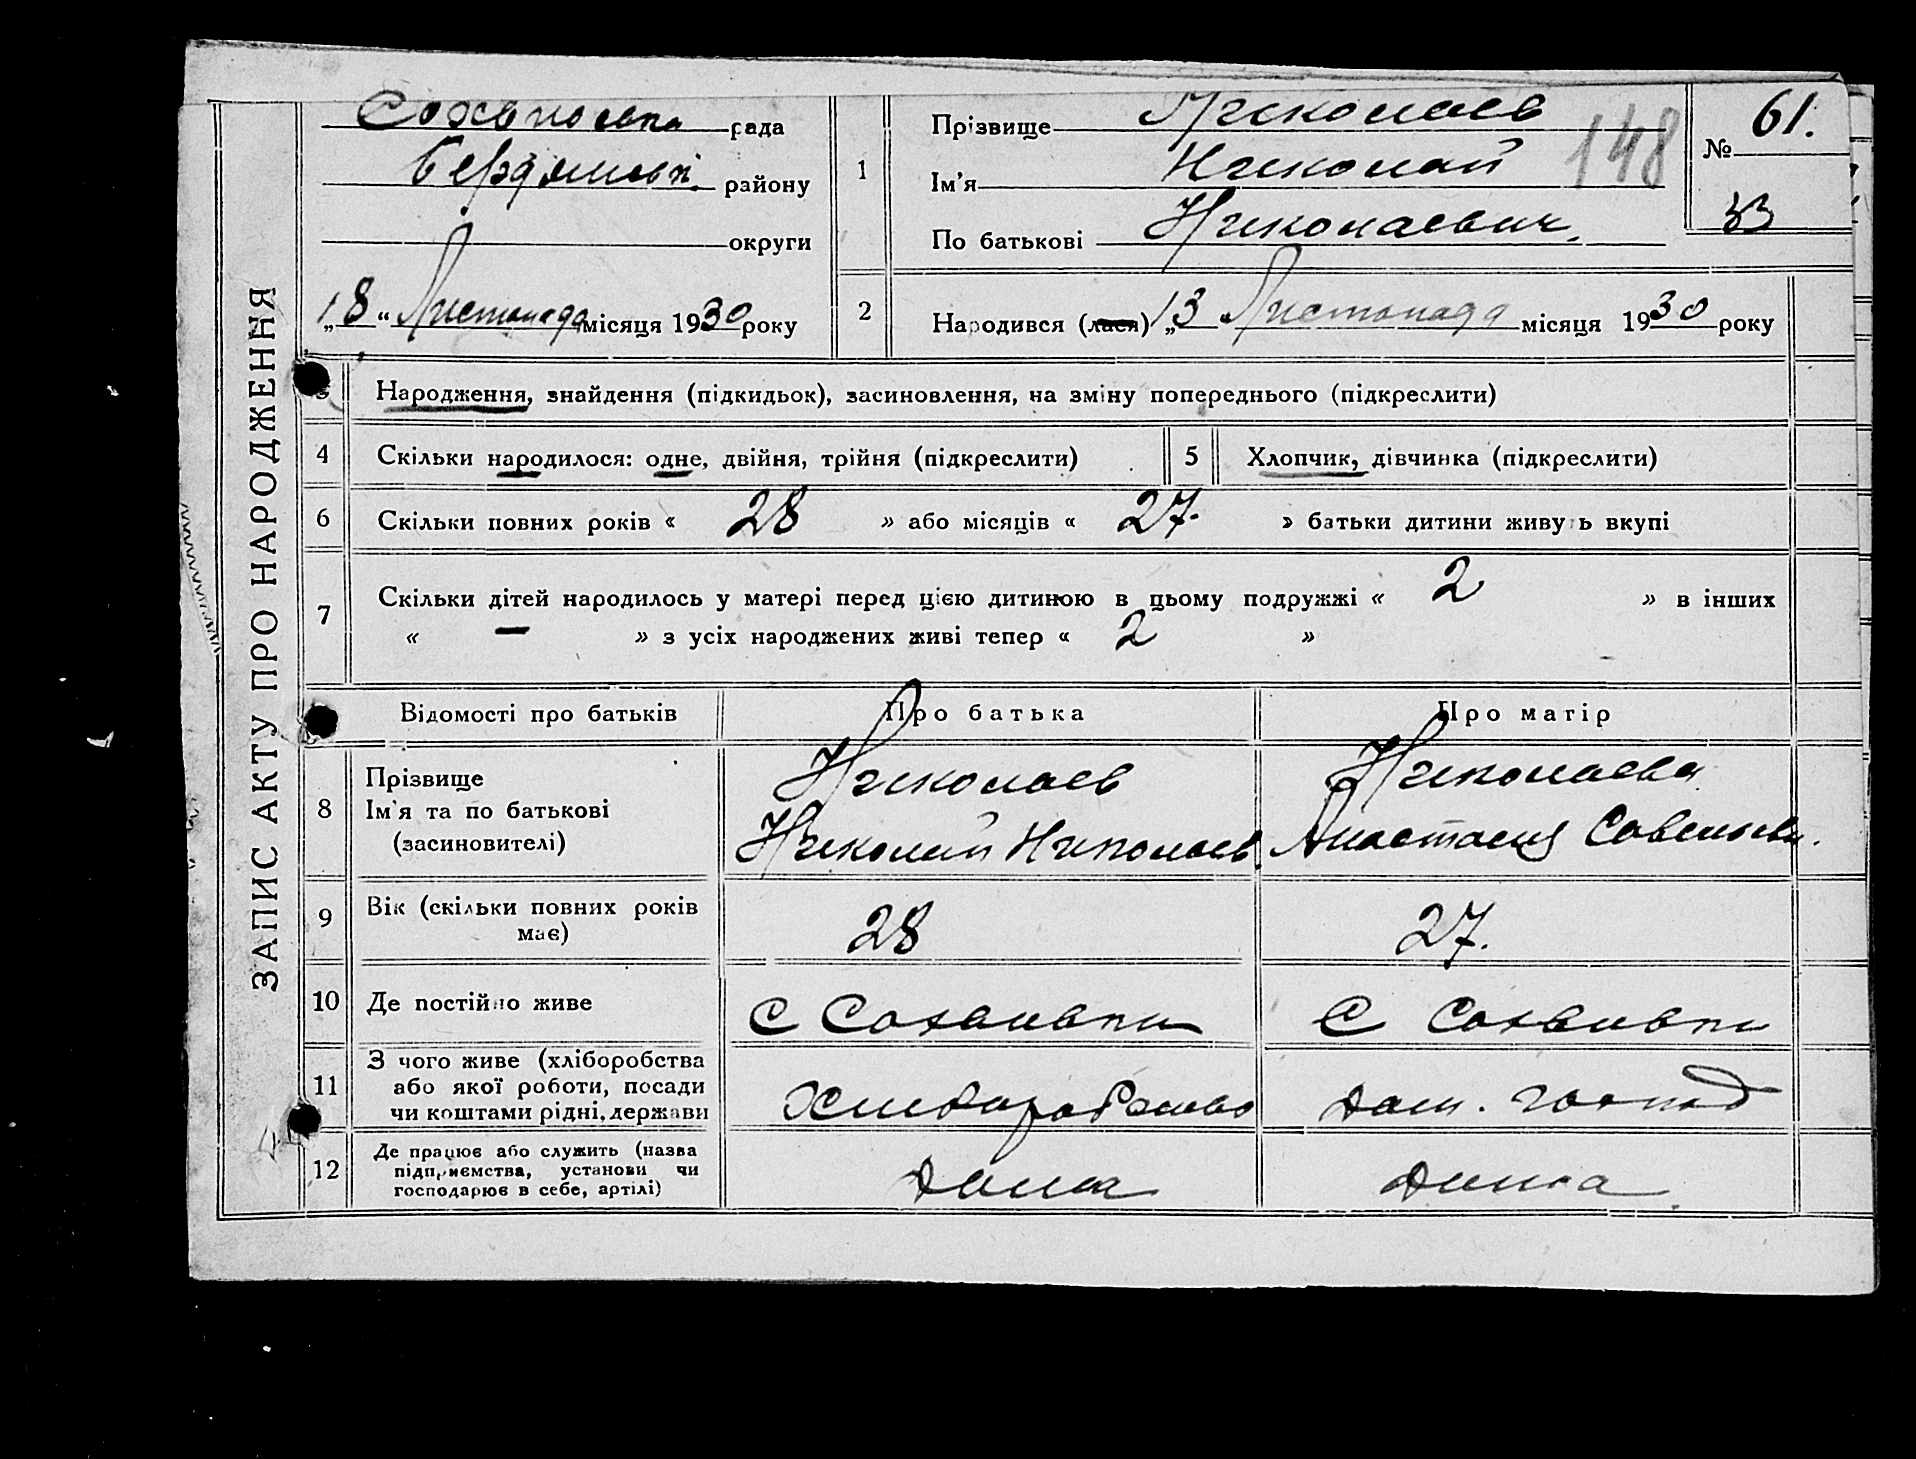 ЗАПИС АКТУ ПРО НАРОДЖЕННЯ
рада
району
округи
„18“ Листопада місяця 1930 року
1
Прізвище Николаев
Ім'я Николай
По батькові Николаевич.
148
№ 61.
33
2
Народився (лася) „13 Листопада місяця 1930 року
3 Народження, знайдення (підкидьок), засиновлення, на зміну попереднього (підкреслити)
4 Скільки народилося: одне, двійня, трійня (підкреслити) 5 Хлопчик, дівчинка (підкреслити)
6 Скільки повних років « 28 » або місяців « 27. » батьки дитини живуть вкупі
7 Скільки дітей народилось у матері перед цією дитиною в цьому подружжі « 2 » в інших
« — » з усіх народжених живі тепер « 2 »
Відомості про батьків Про батька Про матір
8 Прізвище Николаев Николаева
Ім'я та по батькові Николай Николаев. Анастасия
(засиновителі)
9 Вік (скільки повних років має) 28 27.
10 Де постійно живе С С
11 З чого живе (хліборобства або якої роботи, посади чи коштами рідні, держави Хлиборобство дом. господ
12 Де працює або служить (назва підприємства, установи чи господарює в себе, артілі) дома дома